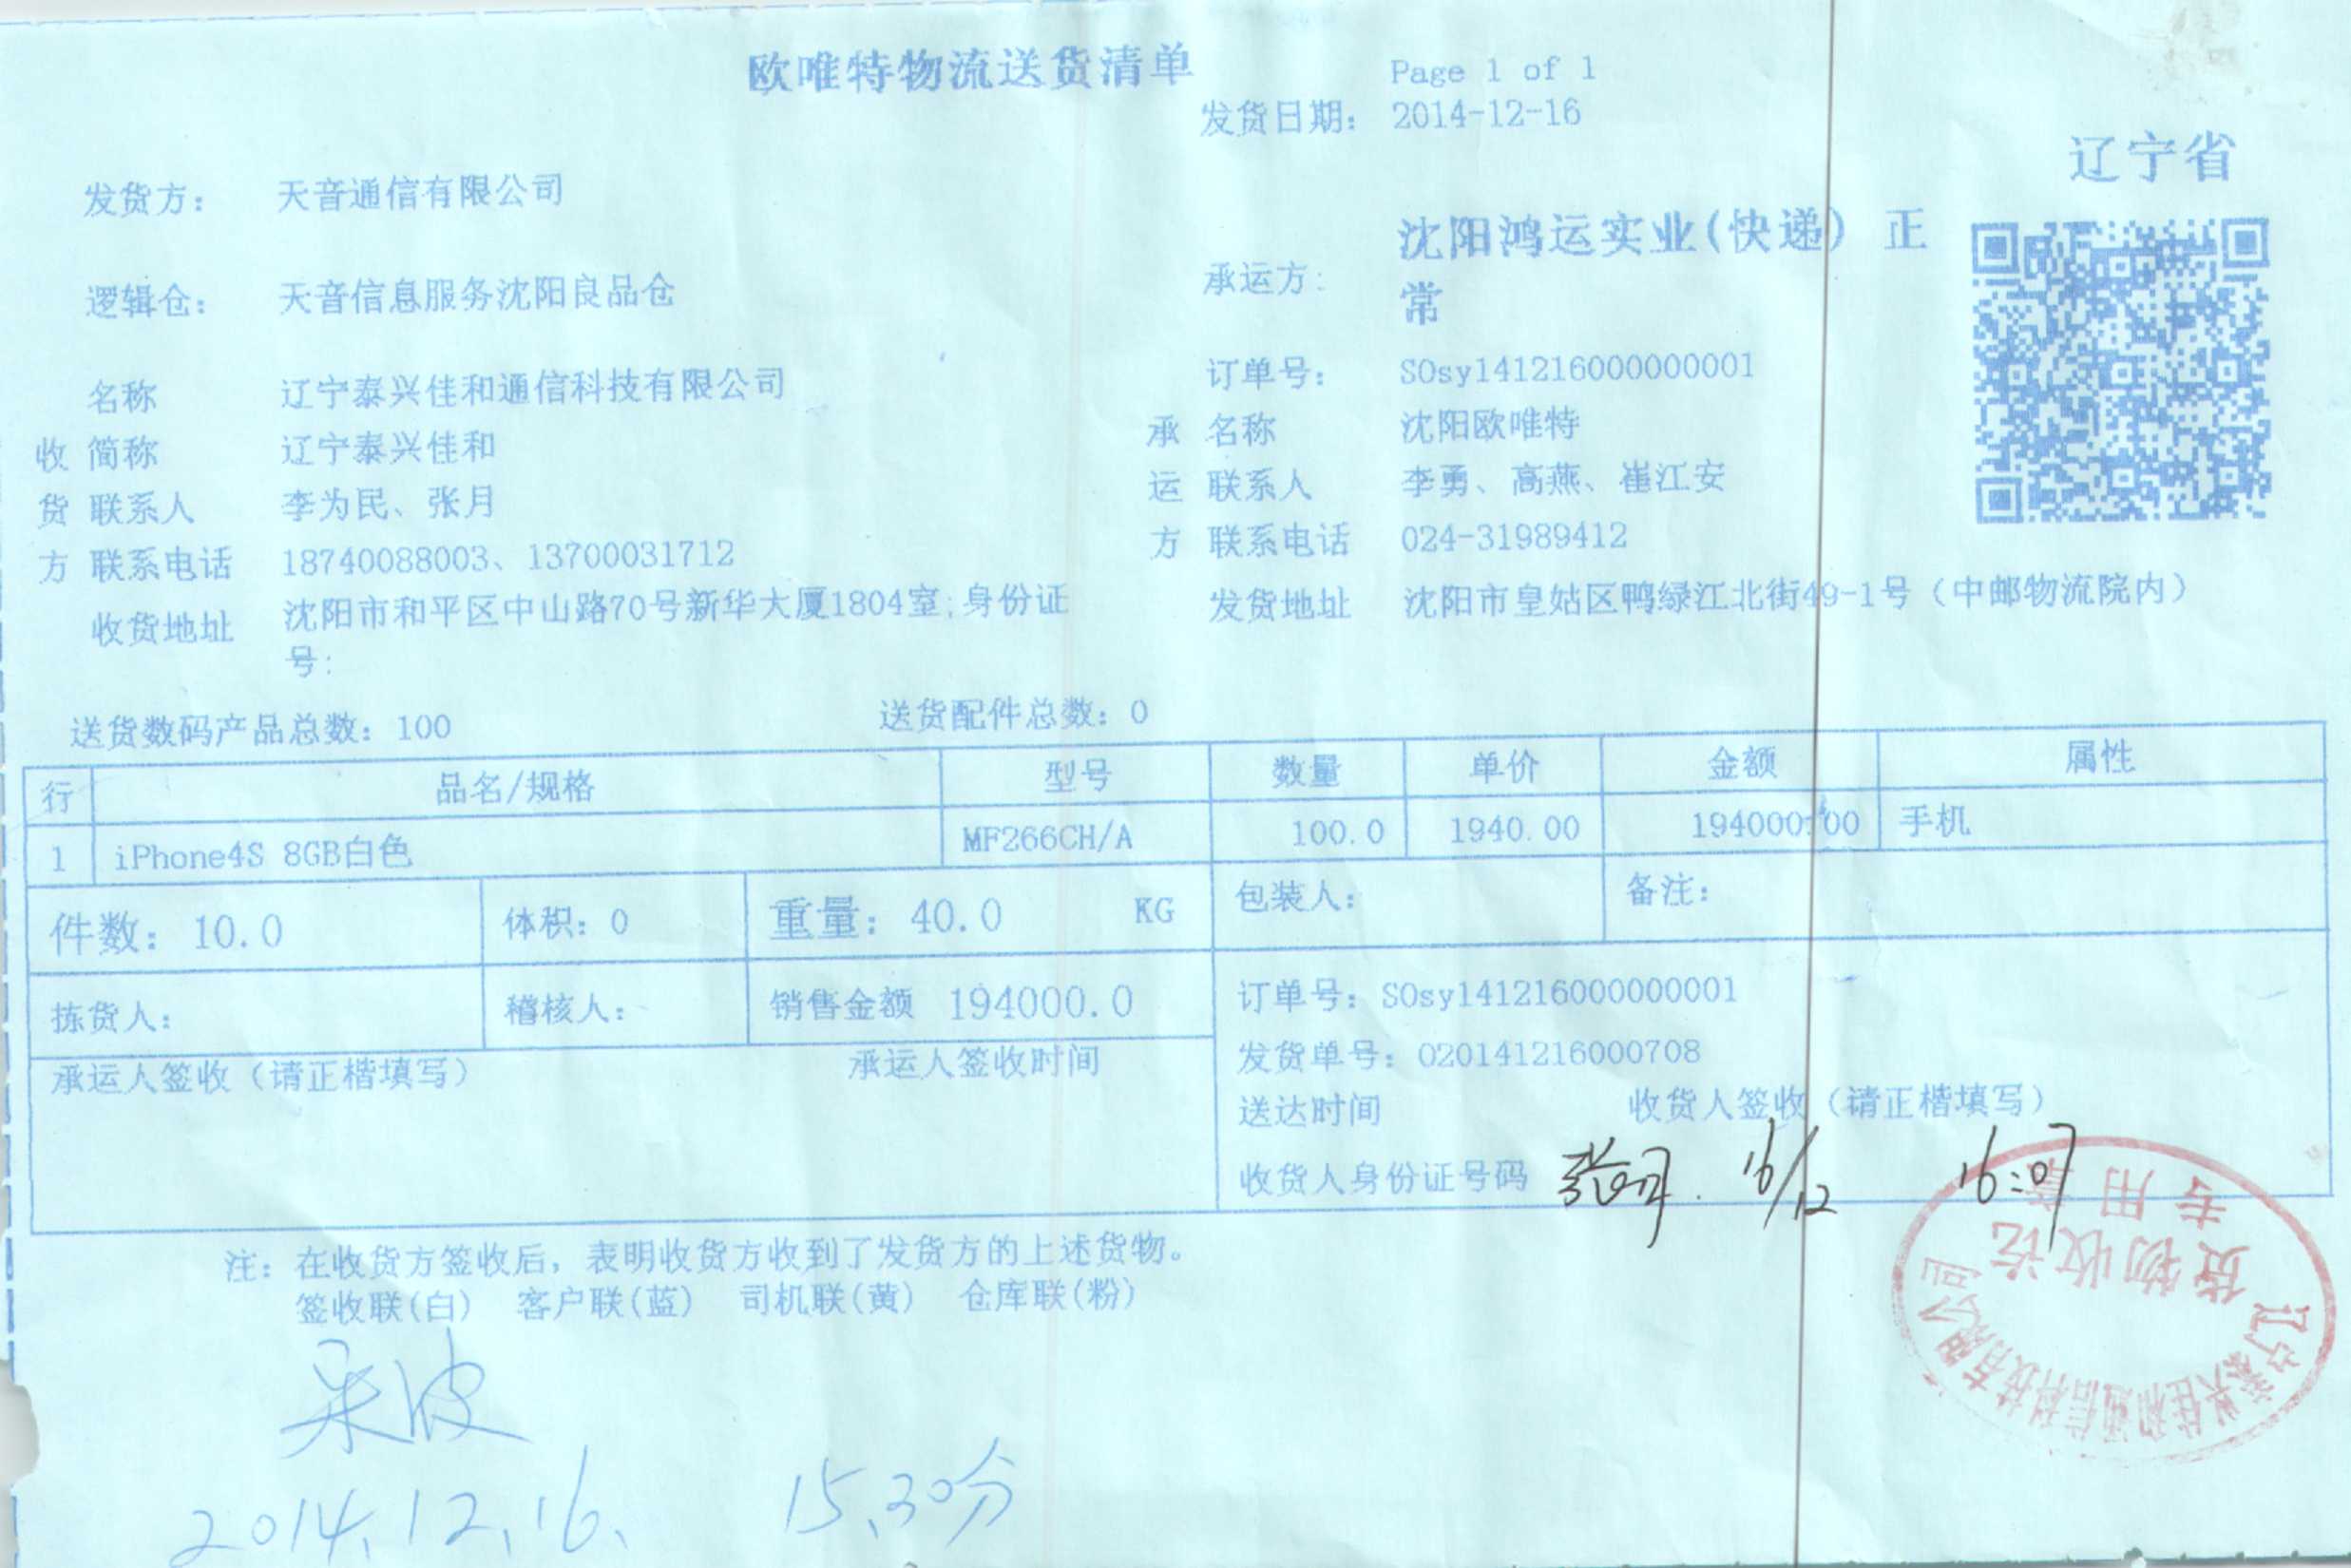 欧唯特物流送货清单
Page 1 of 1
发货日期： 2014-12-16
辽宁省
发货方： 天音通信有限公司
承运方： 沈阳鸿运实业(快递) 正
常
逻辑仓： 天音信息服务沈阳良品仓
订单号： SOsy141216000000001
收货方
名称 辽宁泰兴佳和通信科技有限公司
简称 辽宁泰兴佳和
联系人 李为民、张月
联系电话 18740088003、13700031712
收货地址 沈阳市和平区中山路70号新华大厦1804室;身份证
号:
承运方
名称 沈阳欧唯特
联系人 李勇、高燕、崔江安
联系电话 024-31989412
发货地址 沈阳市皇姑区鸭绿江北街49-1号（中邮物流院内）
送货数码产品总数：100 送货配件总数：0
行 品名/规格 型号 数量 单价 金额 属性
1 iPhone4S 8GB白色 MF266CH/A 100.0 1940.00 194000.00 手机
件数：10.0 体积：0 重量：40.0 KG 包装人： 备注：
拣货人： 稽核人： 销售金额 194000.0
订单号：SOsy141216000000001
发货单号：020141216000708
承运人签收（请正楷填写） 承运人签收时间
送达时间 收货人签收（请正楷填写）
收货人身份证号码 张月. 16/12 16:07
注：在收货方签收后，表明收货方收到了发货方的上述货物。
签收联(白) 客户联(蓝) 司机联(黄) 仓库联(粉)
辽宁泰兴佳和通信科技有限公司
货物收讫
专用章
2014.12.16. 15.30分